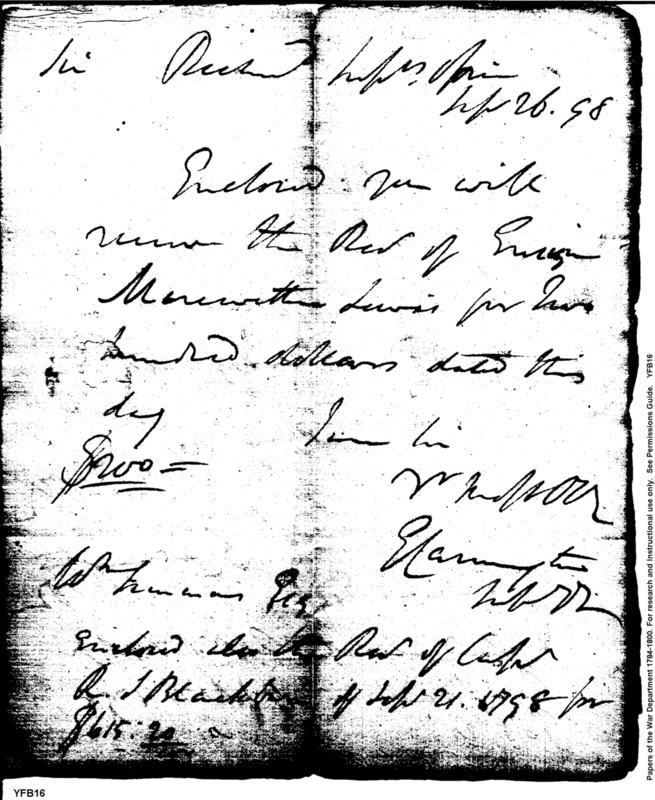 Sir Richmd Supvrs Office
Sept 26. 98
Enclosed you will
receive the Rect of Ensign
Merewether Lewis for Two
hundred dollars dated this
day I am Sir
$200 =
Yr Mo Obt
E Carrington
Wm Simmons Esq
Enclosed also the Rect of Capt
R S Blackburn of Sept 21. 1798 for
$615.20
YFB16
Papers of the War Department 1784-1800. For research and instructional use only. See Permissions Guide. YFB16